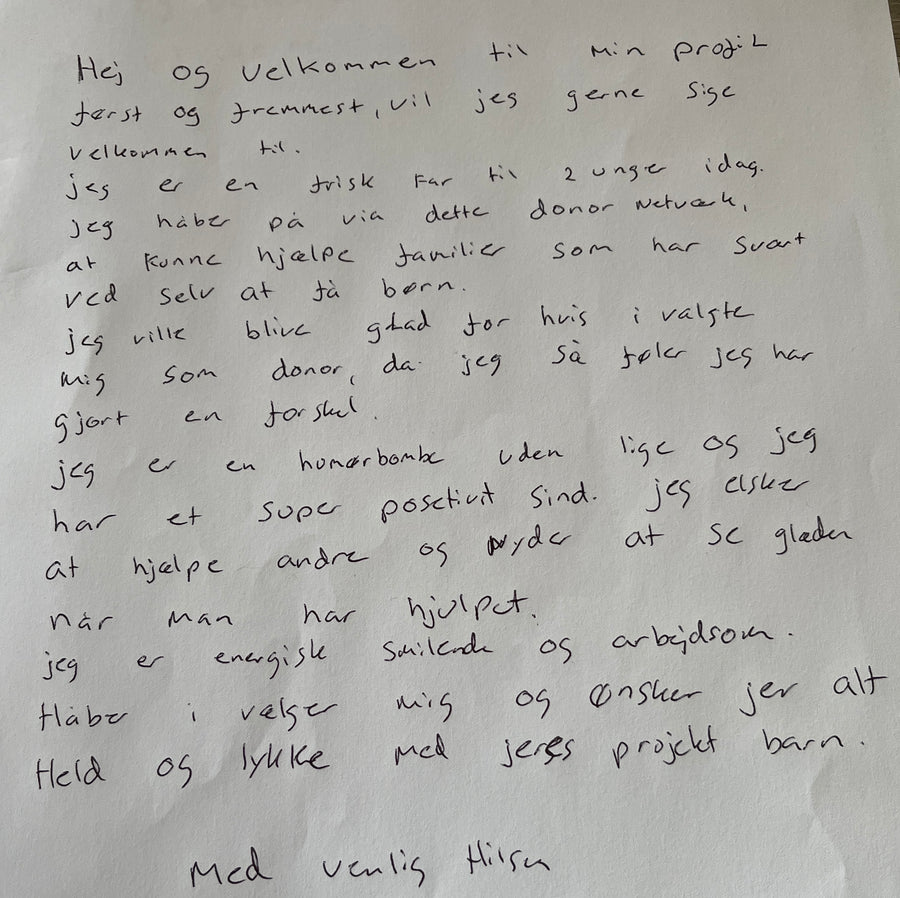 Hej og velkommen til min profil
først og fremmest, vil jeg gerne sige
velkommen til.
jeg er en frisk Far til 2 unger idag.
jeg håber på via dette donor Netværk,
at kunne hjælpe familier som har svært
ved selv at få børn.
jeg ville blive glad for hvis i valgte
mig som donor, da jeg så føler jeg har
gjort en forskel.
jeg er en humørbombe uden lige og jeg
har et super posetivt sind. jeg elsker
at hjælpe andre og Nyder at se glæden
når man har hjulpet.
jeg er energisk smilende og arbejdsom.
Håber i vælger mig og Ønsker jer alt
Held og lykke med jeres projekt barn.
Med venlig Hilsen